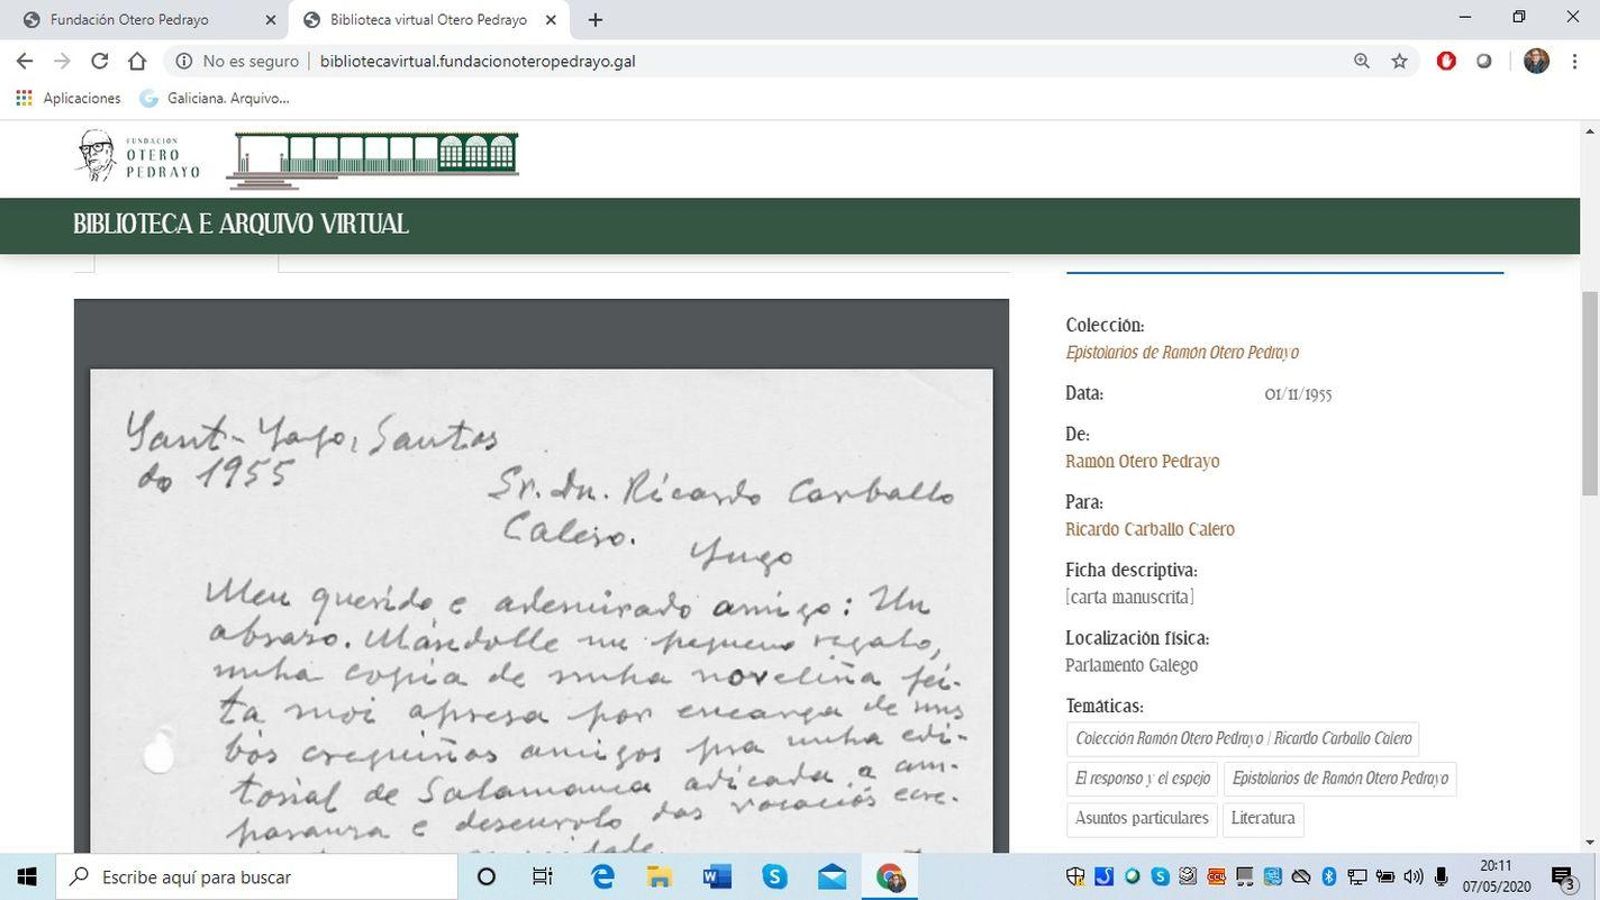 Fundación Otero Pedrayo
Biblioteca virtual Otero Pedrayo
No es seguro
bibliotecavirtual.fundacionoteropedrayo.gal
Aplicaciones
Galiciana. Arquivo...
FUNDACIÓN
OTERO
PEDRAYO
BIBLIOTECA E ARQUIVO VIRTUAL
Sant-Yago, Santos
do 1955
Sr. Dn. Ricardo Carballo
Calero.
Lugo
Meu querido e ademirado amigo: Un
abraso. Mándolle un pequeno regalo,
unha copia de unha noveliña fei-
ta moi apresa por encarga de uns
bós creguiños amigos pra unha edi-
torial de Salamanca adicada a am-
paranza e desenrolo das vocaciós ecre-
Colección:
Epistolarios de Ramón Otero Pedrayo
Data:
01/11/1955
De:
Ramón Otero Pedrayo
Para:
Ricardo Carballo Calero
Ficha descriptiva:
[carta manuscrita]
Localización física:
Parlamento Galego
Temáticas:
Colección Ramón Otero Pedrayo / Ricardo Carballo Calero
El responso y el espejo
Epistolarios de Ramón Otero Pedrayo
Asuntos particulares
Literatura
Escribe aquí para buscar
20:11
07/05/2020
3